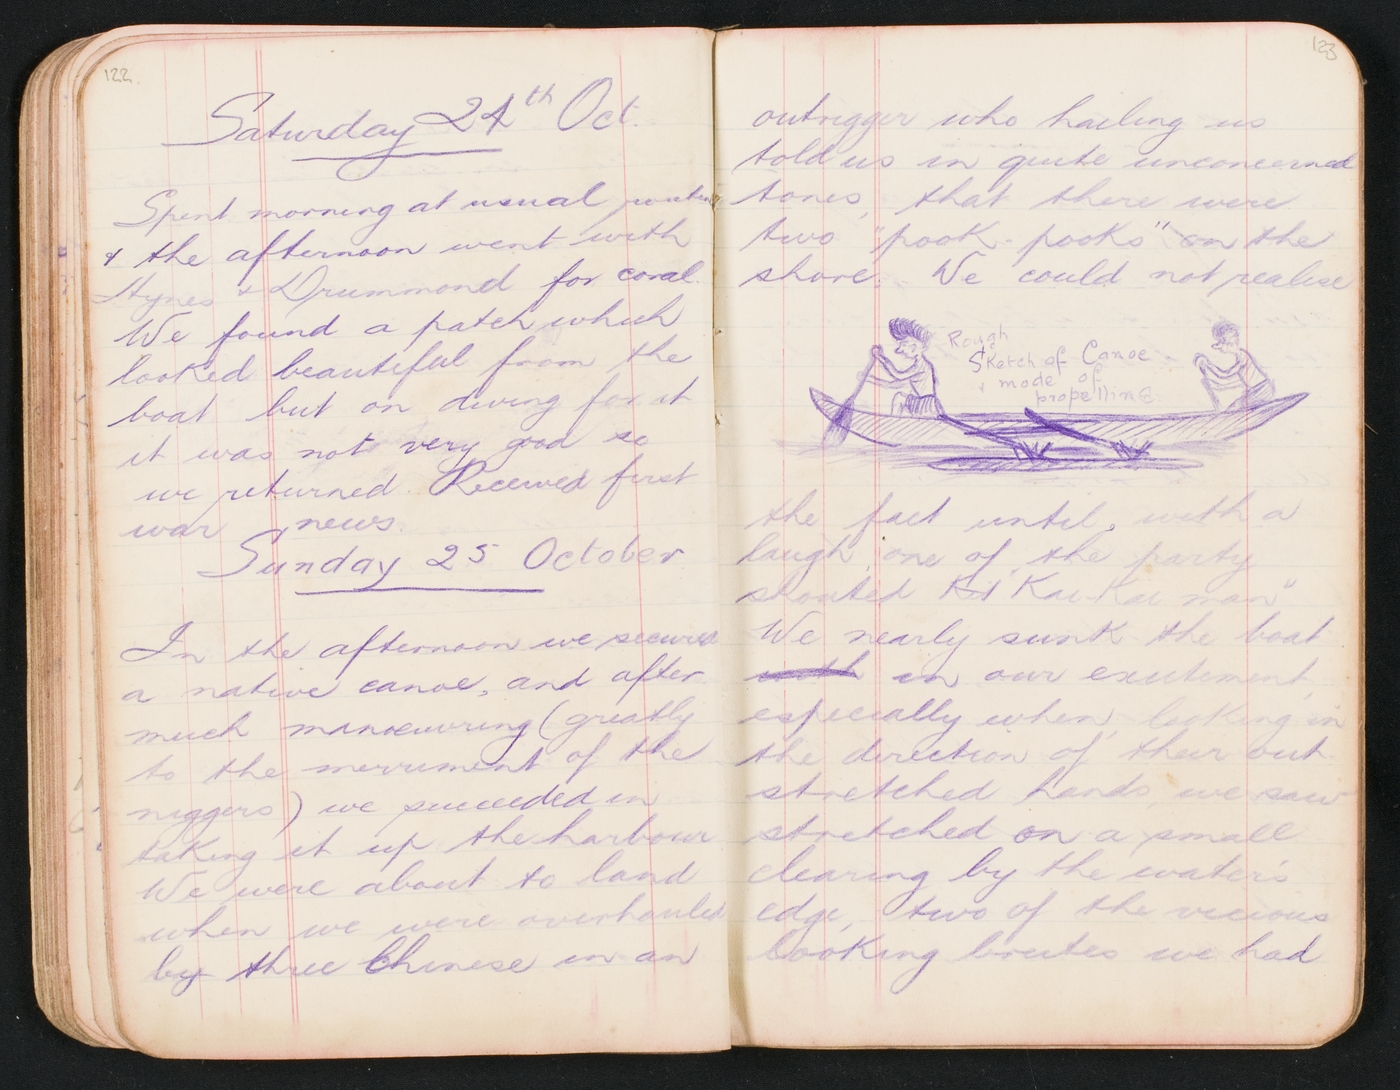 122.
Saturday 24th Oct.
Spent morning at usual routine
& the afternoon went with
Hynes & Drummond for coral.
We found a patch which
looked beautiful from the
boat but on diving for it
it was not very good so
we returned. Received first
war news.
Sunday 25 October
In the afternoon we secured
a native canoe, and after
much manoeuvring (greatly
to the merriment of the
niggers) we succeeded in
taking it up the harbour
We were about to land
when we were overhauled
by three Chinese in an
123
outrigger who hailing us
told us in quite unconcerned
tones, that there were
two "pook-pooks" on the
shore. We could not realise
Rough
Sketch of Canoe
& mode of
propelling
the fact until, with a
laugh, one of the party
shouted "Kai-Kai man"
We nearly sunk the boat
with in our excitement,
especially when, looking in
the direction of their out
stretched hands, we saw
stretched on a small
clearing by the water's
edge, two of the vicious
looking brutes we had